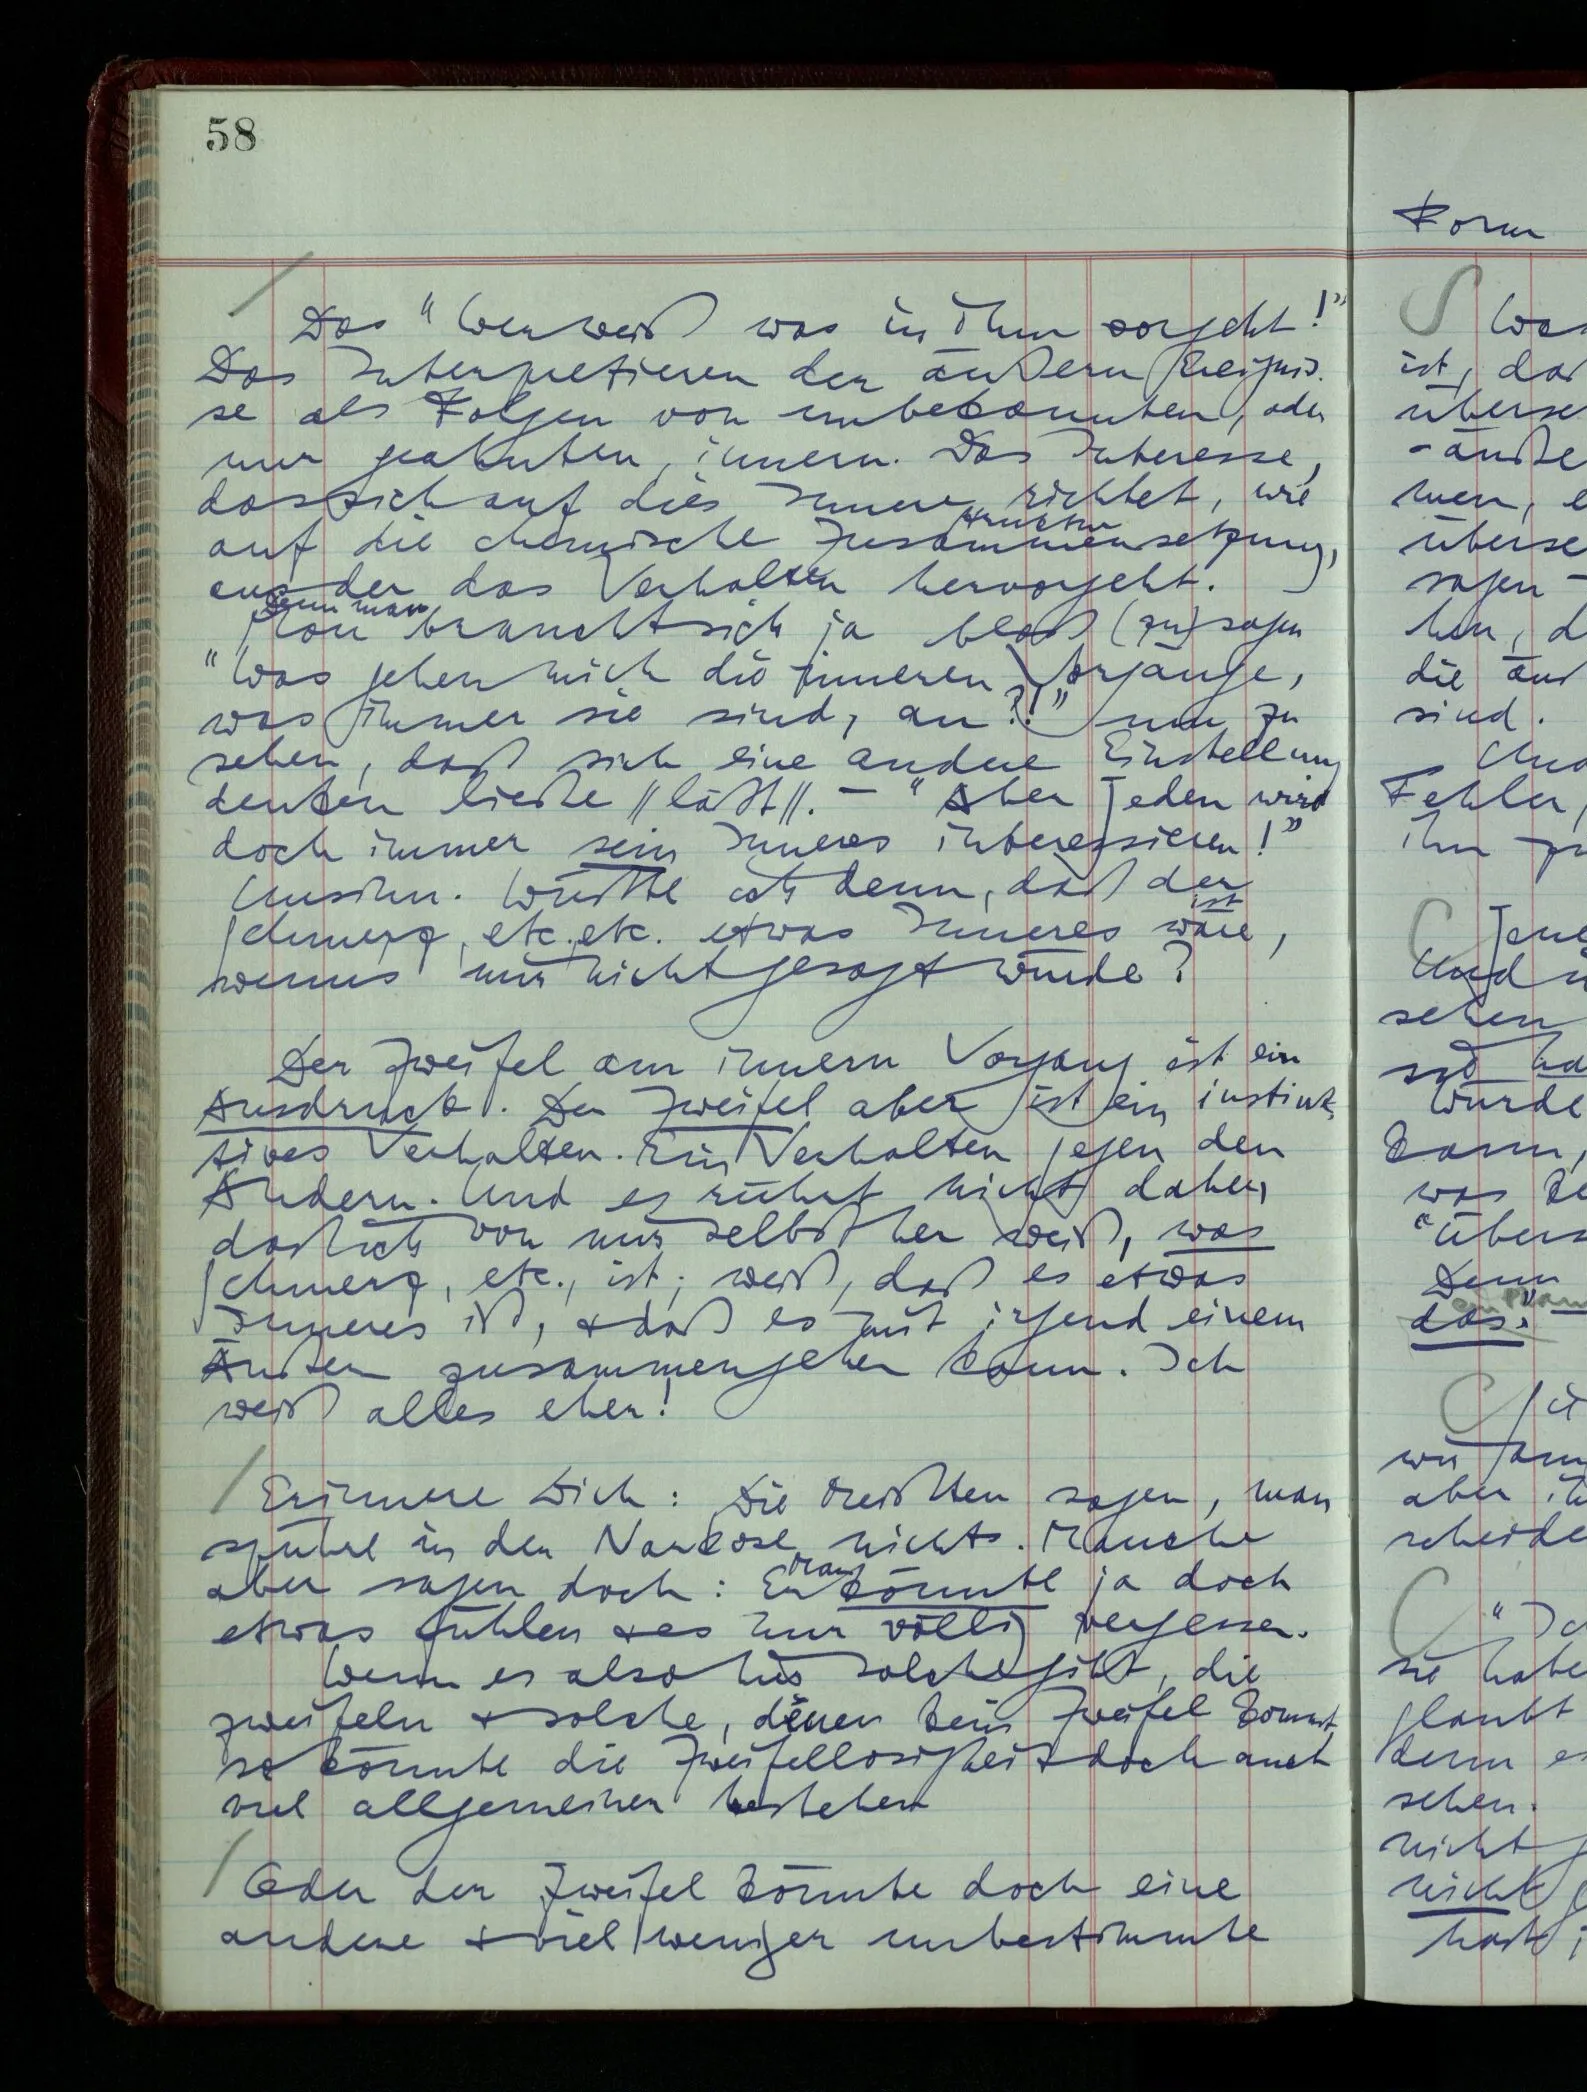 58
Das "Wer weiß was in ihm vorgeht!"
Das Interpretieren der äußern Ereignis-
se als Folgen von unbekannten, oder
nur geahnten, innern. Das Interesse,
das sich auf dies Innere richtet, wie
auf die chemische Zusammensetzung,
Struktur
aus der das Verhalten hervorgeht.
Denn man
Man braucht sich ja bloß (zu) sagen
"Was gehen mich die inneren Vorgänge,
was immer sie sind, an?!" um zu
sehen, daß sich eine andere Einstellung
denken ließe //läßt//. – "Aber jeden wird
doch immer sein Inneres interessieren!"
Unsinn. Wüßte ich denn, daß der
ist
Schmerz, etc. etc. etwas Inneres wäre,
wenns mir nicht gesagt würde?
Der Zweifel am innern Vorgang ist ein
Ausdruck. Der Zweifel aber ist ein instink-
tives Verhalten. Ein Verhalten gegen den
Andern. Und es rührt nicht daher,
daß ich von mir selbst her weiß, was
Schmerz, etc., ist; weiß, daß es etwas
Inneres ist, & daß es mit irgend einem
Äußern zusammengehen kann. Ich
weiß alles eher!
Erinnere Dich: Die meisten sagen, man
spüre in der Narkose nichts. Manche
aber sagen doch: Er könnte ja doch
man
etwas fühlen & es nur völlig vergessen.
Wenn es also hier solche gibt, die
zweifeln & solche, denen kein Zweifel kommt,
so könnte die Zweifellosigkeit doch auch
viel allgemeiner bestehen
Oder der Zweifel könnte doch eine
andere & viel weniger unbestimmte
Form
Was
ist, daß
überse
äuße
men, e
überse
sagen –
hen, d
die äuß
sind.
Und
Fehler,
ihn zu
Jene
Und
sehen
würde
kann,
was
"übers
Denn
das."
wir
aber
scheide
"Ic
sie habe
glaubt
denn es
sehen.
nicht
nicht